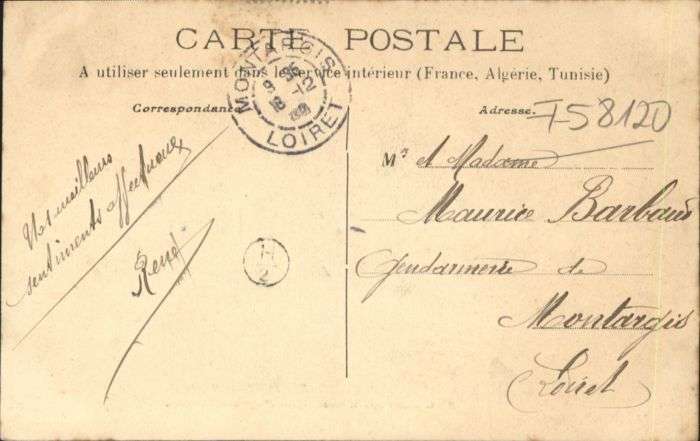 CARTE POSTALE
A utiliser seulement dans le service intérieur (France, Algérie, Tunisie)
Correspondance
Adresse.
T-58120
MONTARGIS
LOIRET
Mr et Madame
Maurice Barbaud
Gendarmerie de
Montargis
Loiret
Vos meilleurs
sentiments affectueux
René